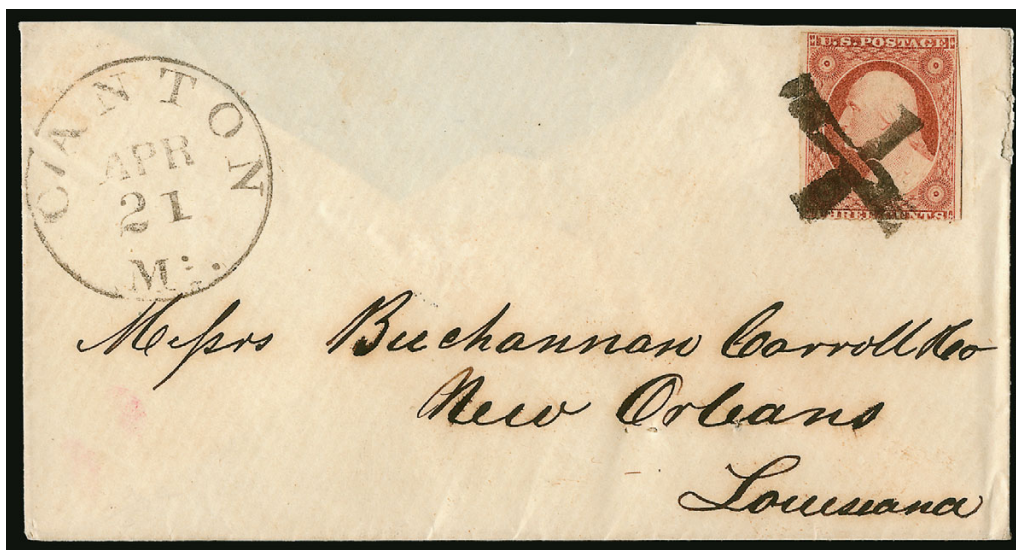 CANTON
APR
21
M:.
U.S. POSTAGE
THREE CENTS
Messrs Buchannan Carroll & Co
New Orleans
Louisiana